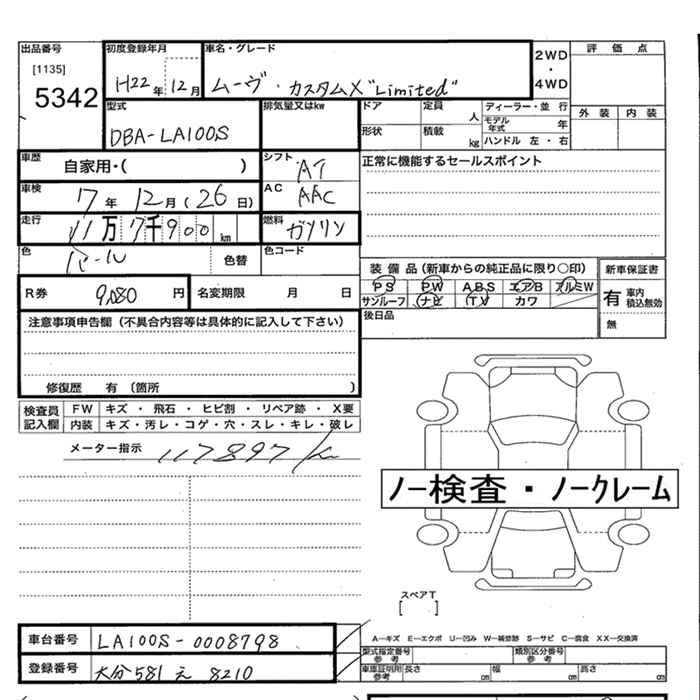 出品番号 初度登録年月 車名・グレード 2WD ・ 4WD 評価点
[1135]
5342 H22年 12月 ムーヴ・カスタムX"Limited"
型式 排気量又はkw ドア 定員 人 ディーラー・並行 外装 内装
モデル年式 年
DBA-LA100S 形状 積載 kg ハンドル 左・右
車歴 自家用・( ) シフト AT 正常に機能するセールスポイント
車検 17年 12月(26日) AC AAC
走行 11万7千900km 燃料 ガソリン
色 パール 色替 色コード
装備品(新車からの純正品に限り○印) 新車保証書
R券 9,080円 名変期限 月 日 PS PW ABS エアB アルミW 有 車内積込無効
サンルーフ (ナビ) (TV) カワ
注意事項申告欄(不具合内容等は具体的に記入して下さい) 後日品 無
修復歴 有 (箇所 )
検査員記入欄 FW キズ・飛石・ヒビ割・リペア跡・X要
内装 キズ・汚レ・コゲ・穴・スレ・キレ・破レ
メーター指示 117897K
ノー検査・ノークレーム
スペアT
[ ]
車台番号 LA100S-0008798 A―キズ E―エクボ U―凹み W―補修跡 S―サビ C―腐食 XX―交換済
型式指定番号 参考 類別区分番号 参考
登録番号 大分 581 え 8210 車庫証明用 参考 長さ cm 幅 cm 高さ cm